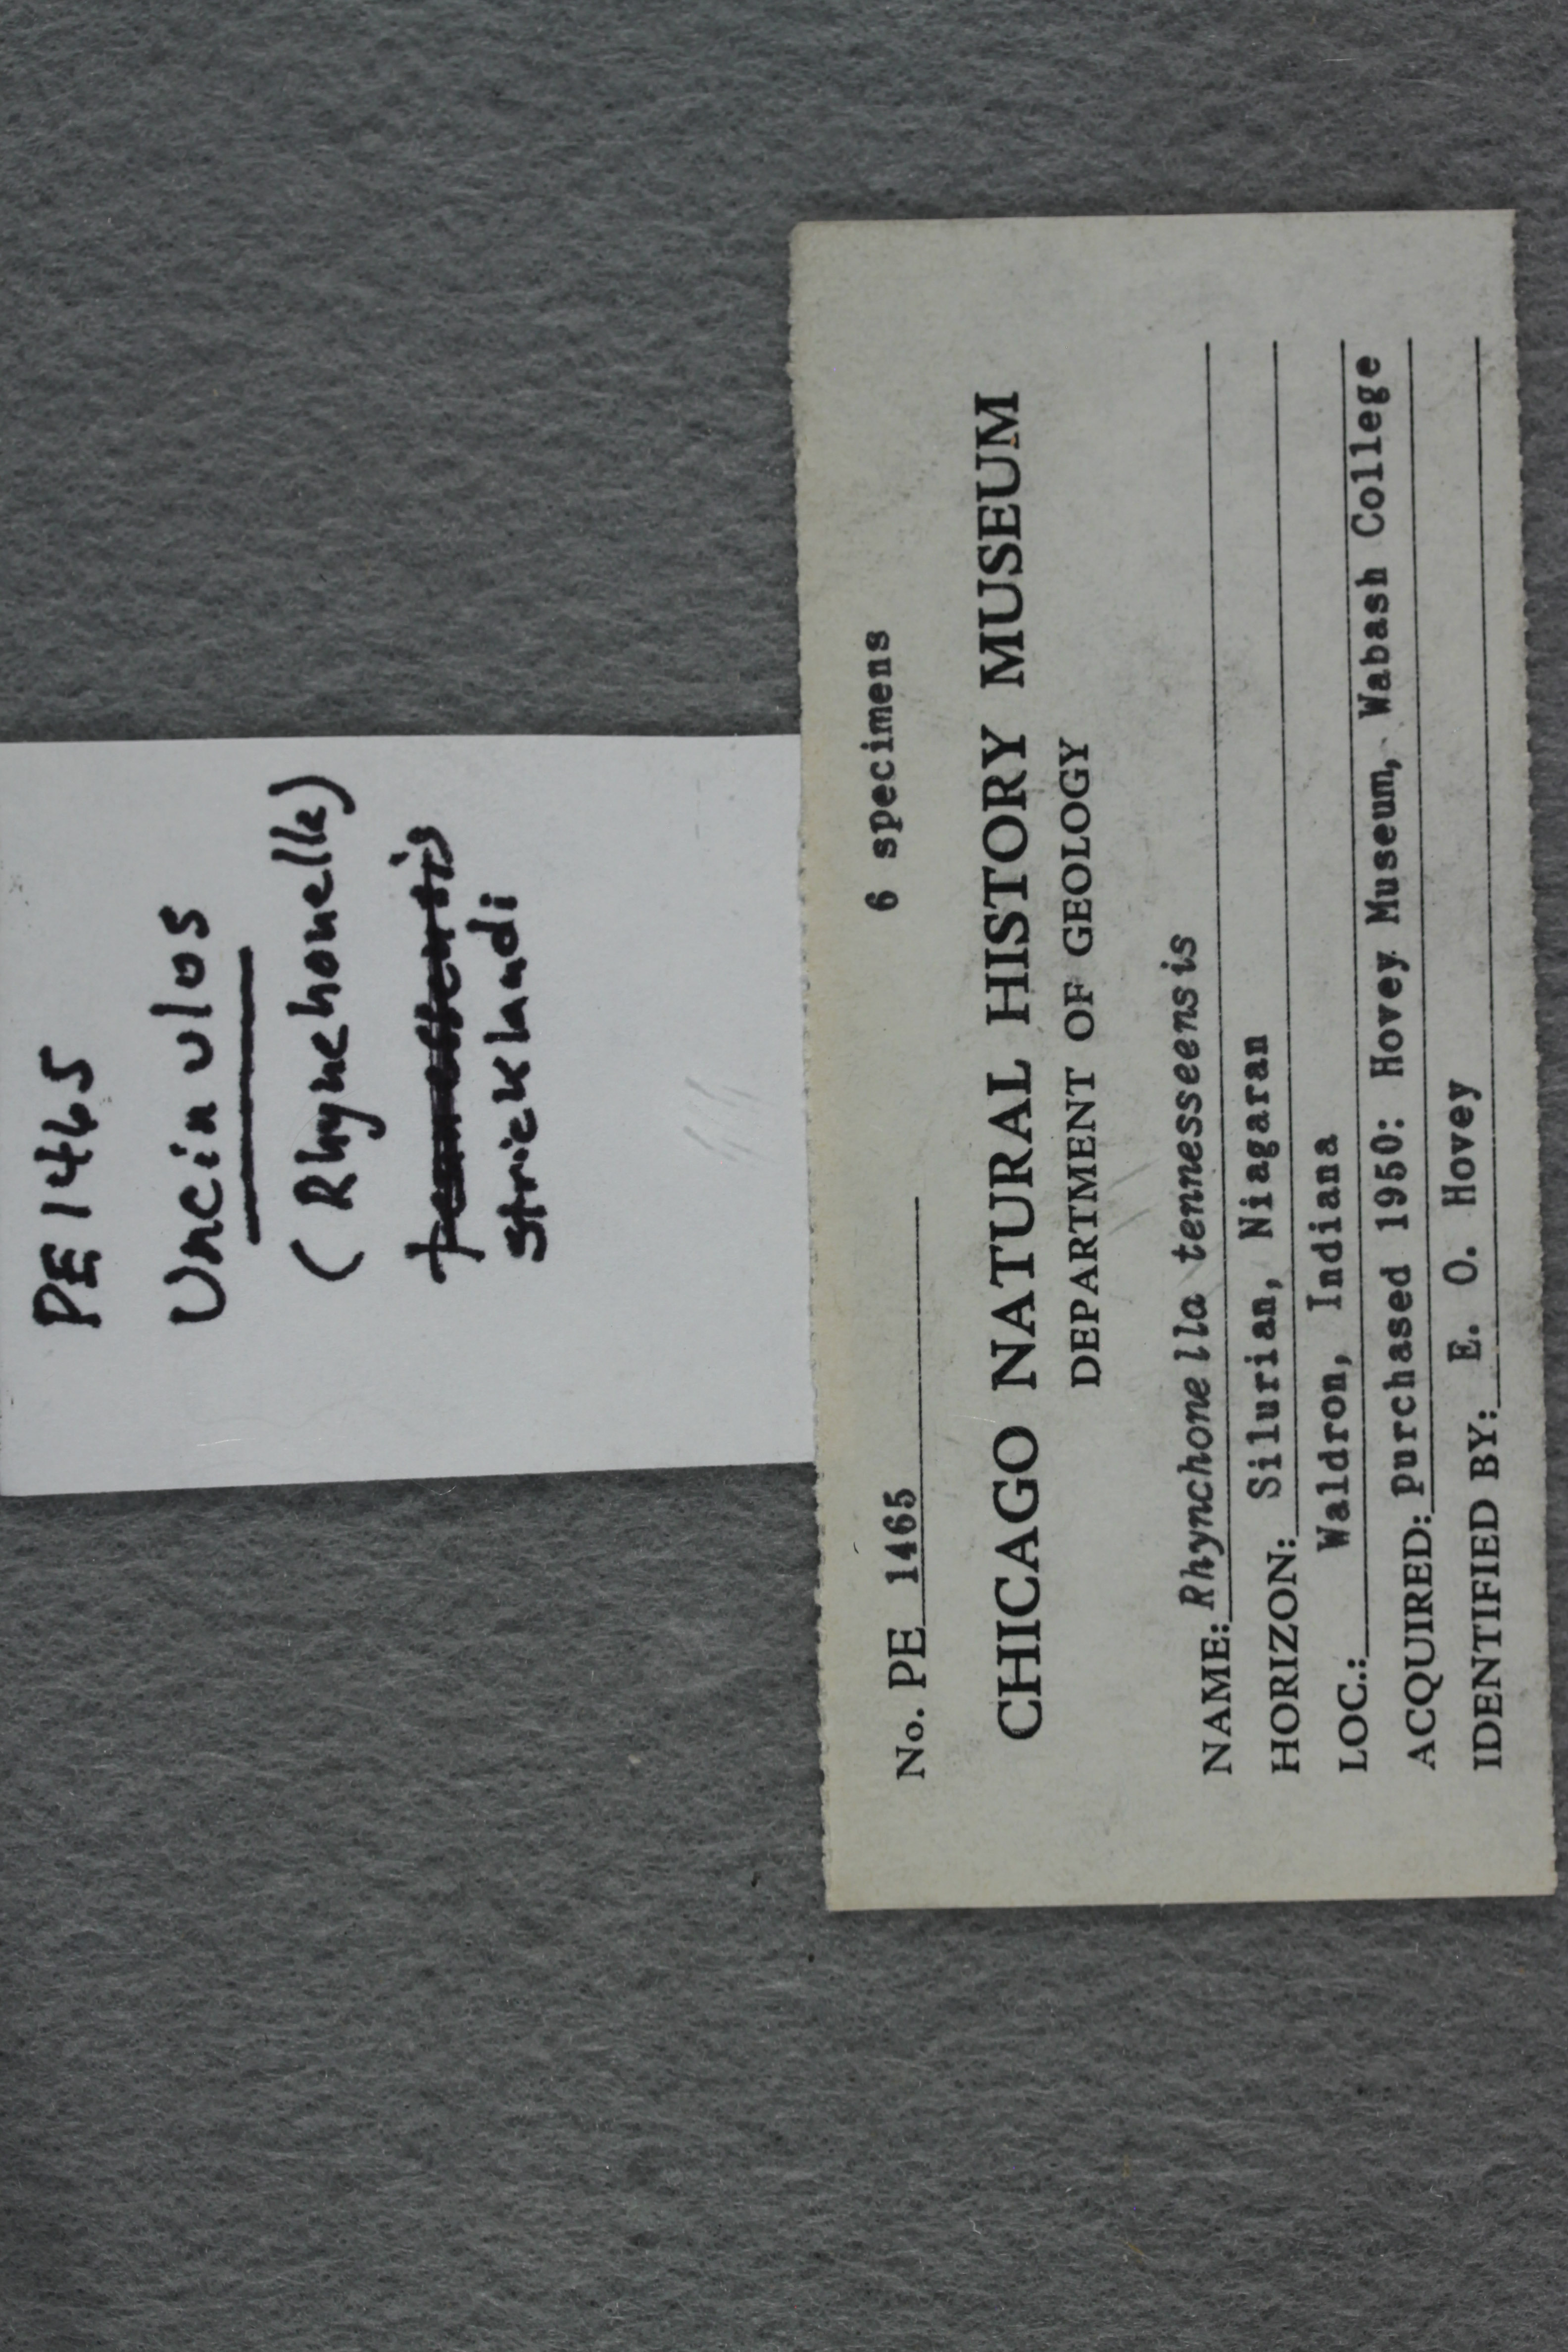 PE 1465
Uncinulus
(Rhynchonella)
tennessensis
stricklandi
6 specimens
No. PE 1465
CHICAGO NATURAL HISTORY MUSEUM
DEPARTMENT OF GEOLOGY
NAME: Rhynchonella tennesseensis
HORIZON: Silurian, Niagaran
LOC.: Waldron, Indiana
ACQUIRED: purchased 1950: Hovey Museum, Wabash College
IDENTIFIED BY: E. O. Hovey